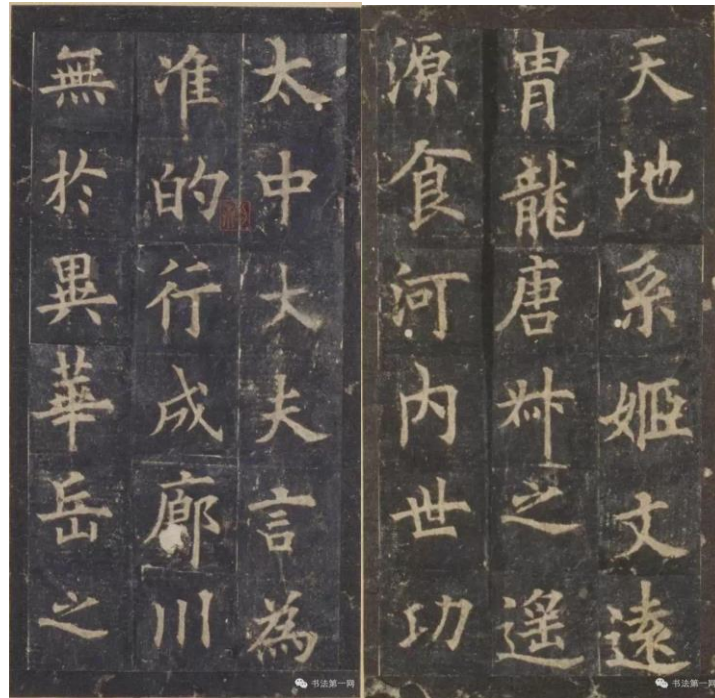 天地系姬文遠
胄龍唐叔之遥
源食河内世功
太中大夫言為
准的行成廊川
無於異華岳之
书法第一网
书法第一网